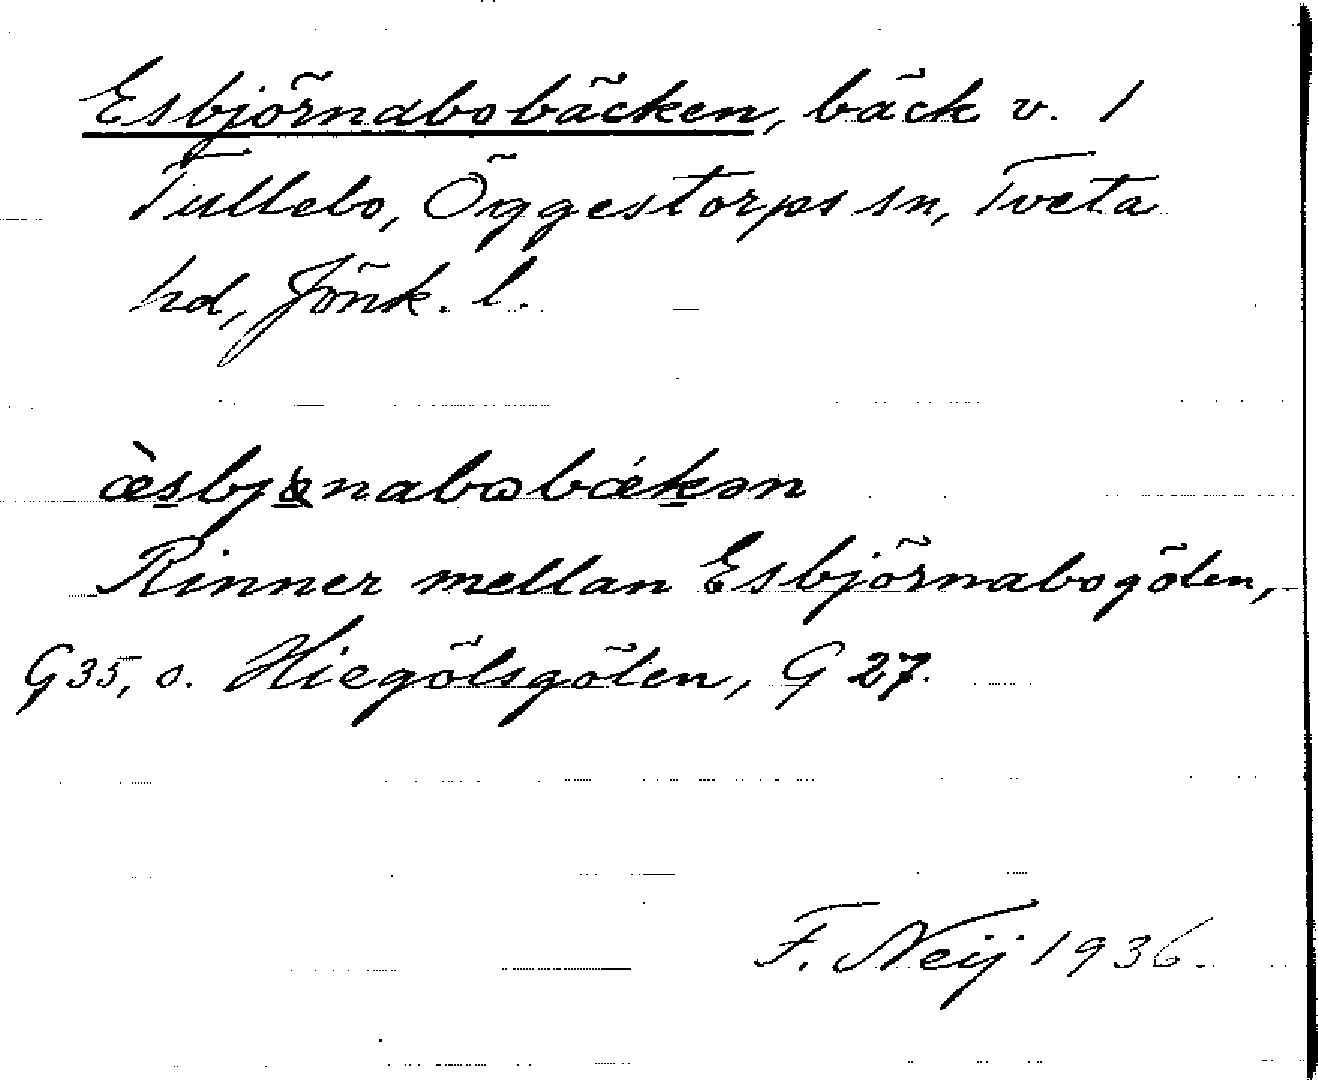 Esbjörnabobäcken, bäck v. 1
Tullebo, Öggestorps sn, Tveta
hd, Jönk. l.
æ̀sbjɵnabωbǽkən
Rinner mellan Esbjörnabogölen,
G35, o. Hiegölsgölen, G 27.
F. Neij 1936.